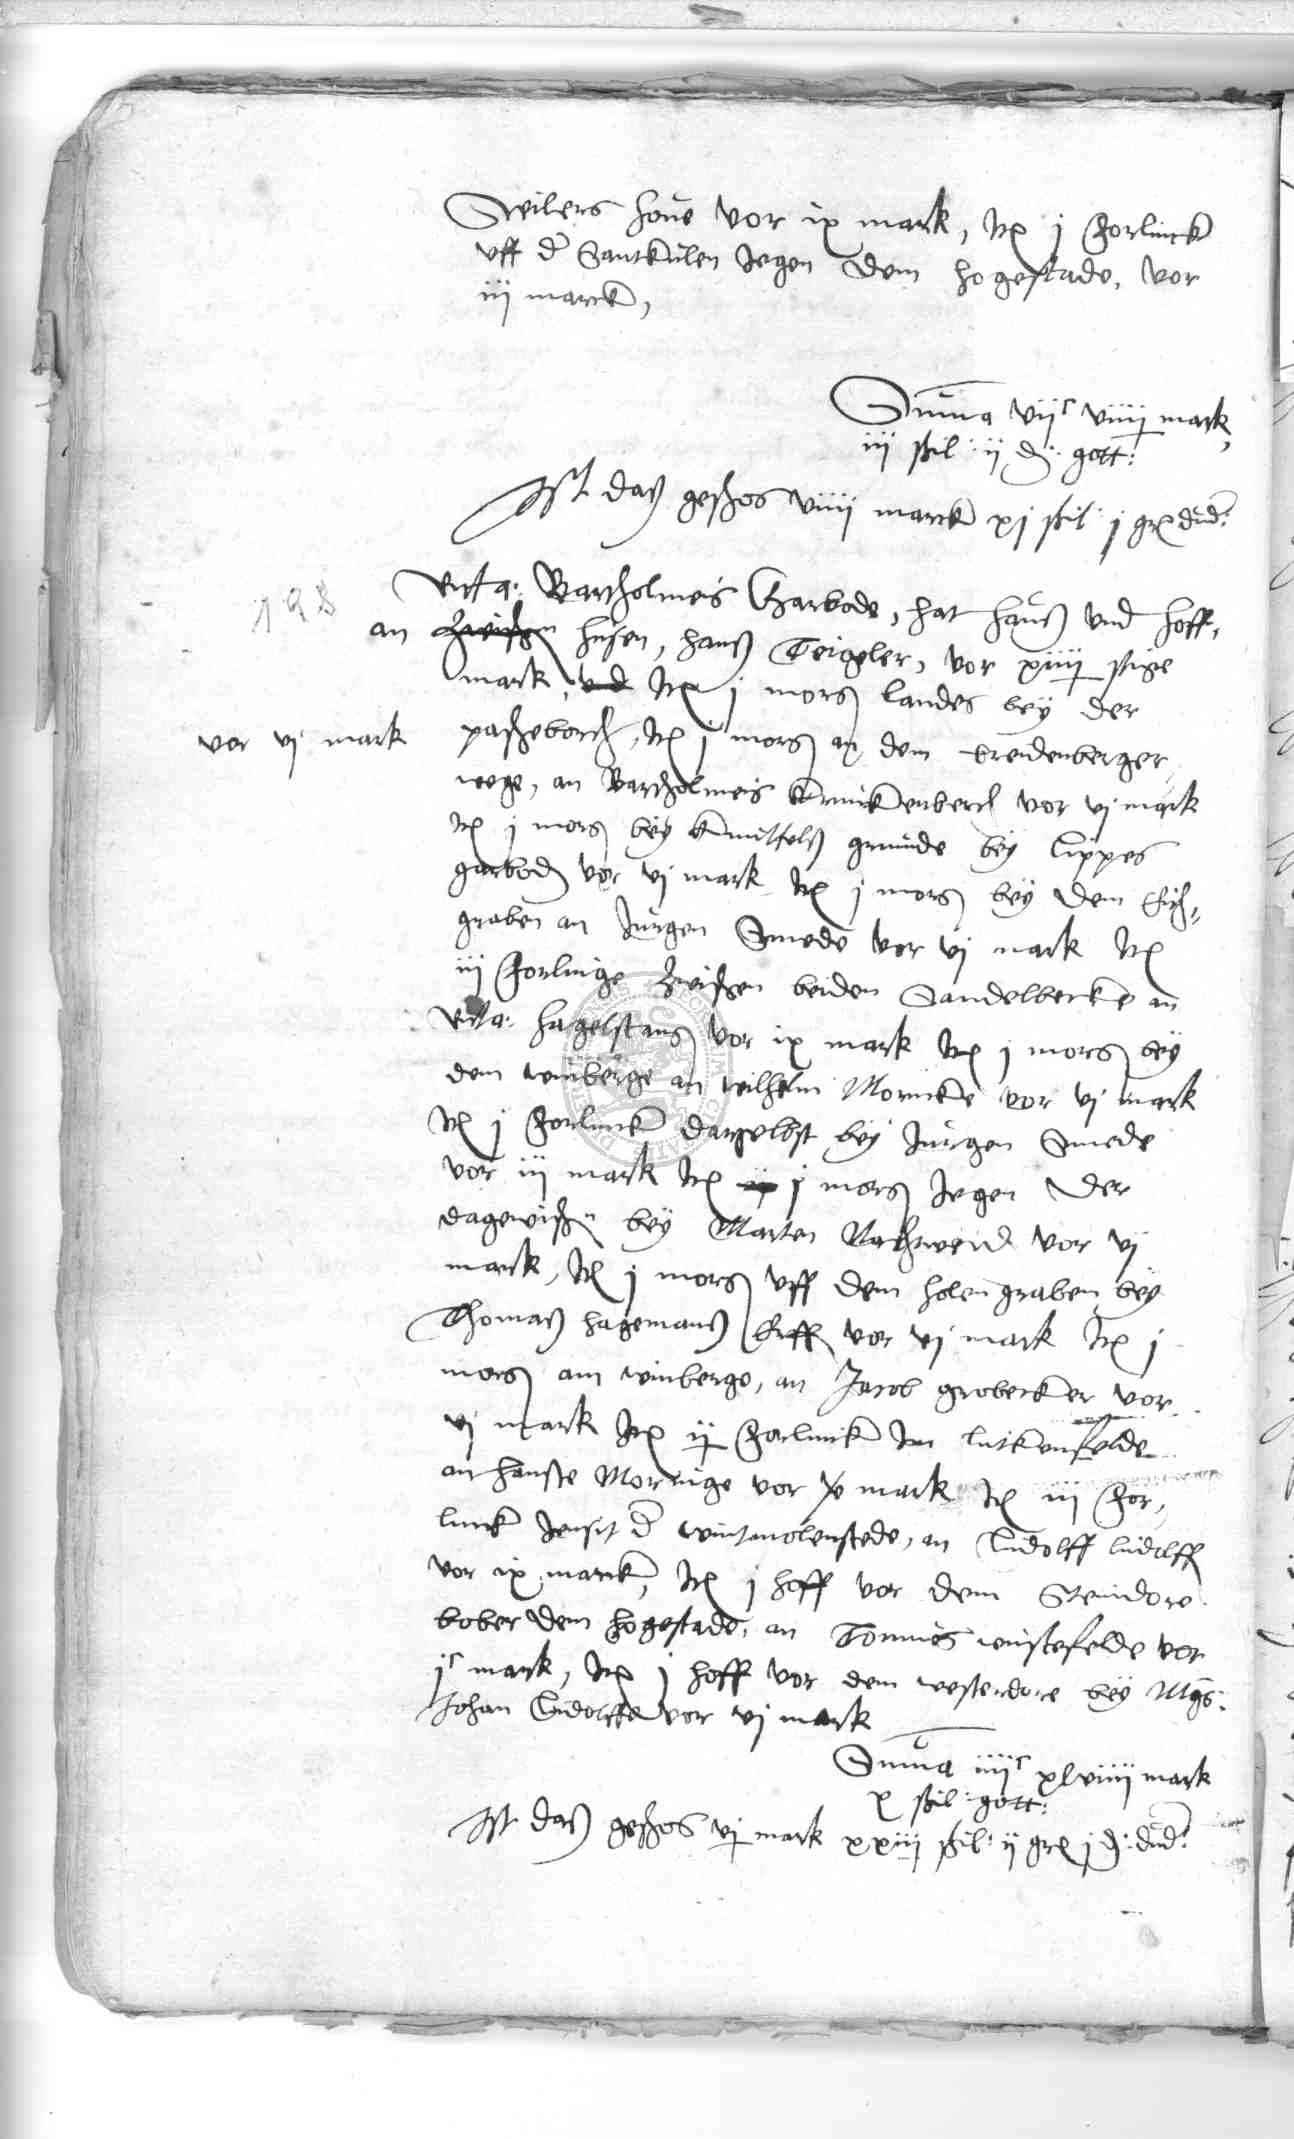 Weilers houe vor ix mark, Itẽ j Forlinck
vff d' Santkulen Jegen dem hogestade, vor
iij marck,
Suma vijc viiij mark,
iij ßil: ij d: gott:
Ist daß geschos viiij marck xj ßil: j gr dud:
198
Bartholmeus Garbode, hat hauß vnd hoff,
an zwischen husen, hanß Teigeler, vor xiiij stige
mark, vnd Itẽ j morg landes bey der
vor vj mark
pascheborch, Itẽ j morg an dem breidenberger
wege, an Bartholmeis vor vj mark
Itẽ j morg bey grunde bey Lippes
garbod vor vj mark Itẽ j morg bey dem
graben an Jurgen Smede vor vj mark Itẽ
iij Forlinge zwischen beiden Sandelbecke an
hagelstang vor ix mark Itẽ j morg bey
dem winberge an wilhelm Mornicke vor vj mark
Itẽ j Forlinck darselbst bey Jurgen Smede
vor iij mark Itẽ j morg Jegen der
dagewischen bey Marten vor vj
mark, Itẽ j morg vff dem holen graben bey
Thomaß hagemanß vor vj mark Itẽ j
morg am winberge, an Jacob grobecker vor
vj mark Itẽ ij Forlinck Im lutkenfelde
an hanße Morringe vor mark Itẽ iij For,
linck Jensit d' wintmolenstede, an Ludolff ludolff
vor ix marck, Itẽ j hoff vor dem Steindore
bober dem hogestade, an Tonnies wustefelde vor
jc mark, Itẽ j hoff vor dem westerdore bey Mgs:
Johan Ludolffe vor vj mark
Suma iiijc xlviiij mark
x ßil: gott:
Ist daß geschos vj mark xxiij ßil: ij gr j d: dud: